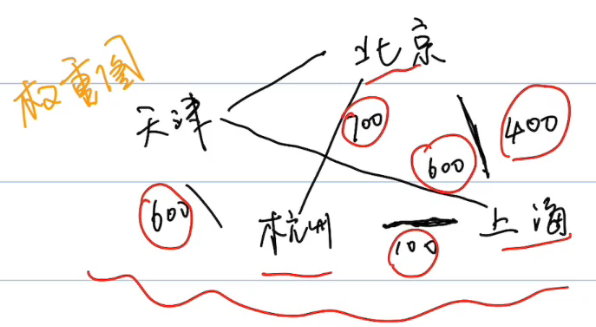 权重图
北京
天津
700
400
600
600
杭州
上海
100